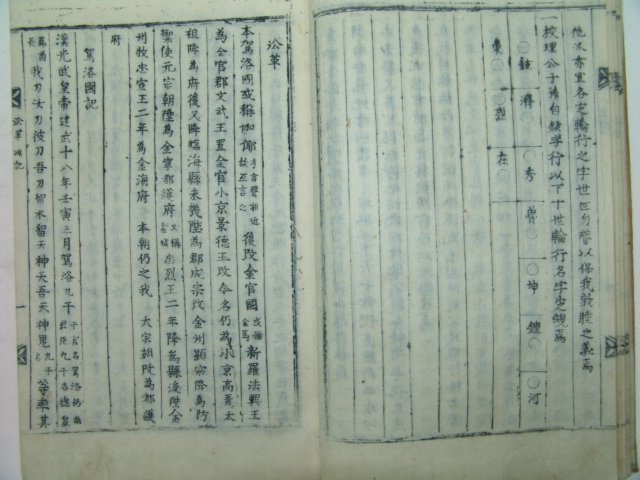 他派亦宜各定輪行之字世世勿替以保我敦睦之義焉
一校理公子孫自鉉字行以下十世輪行名字定規焉
○鉉○濟○秀○魯○坤○鍾○河
○東○烈○在○
沿革
本駕洛國或稱伽倻方言聲相近故互言之後改金官國或稱金烏新羅法興王
為金官郡文武王置金官小京景德王改今名仍為小京高麗太
祖降為府後又降臨海縣未幾陞為郡成宗改金州縣宗降為防
禦使元宗朝陞為金寧都護府又稱金城忠烈王二年降為縣後陞金
州牧忠宣王二年為金海府 本朝仍之我 太宗朝改為都護
府
駕洛國記
漢光武皇帝建武十八年壬寅三月駕洛九干
酋我刀汝刀彼刀吾刀留水留天神天吾天神鬼九干等率其
沿革 國記
一